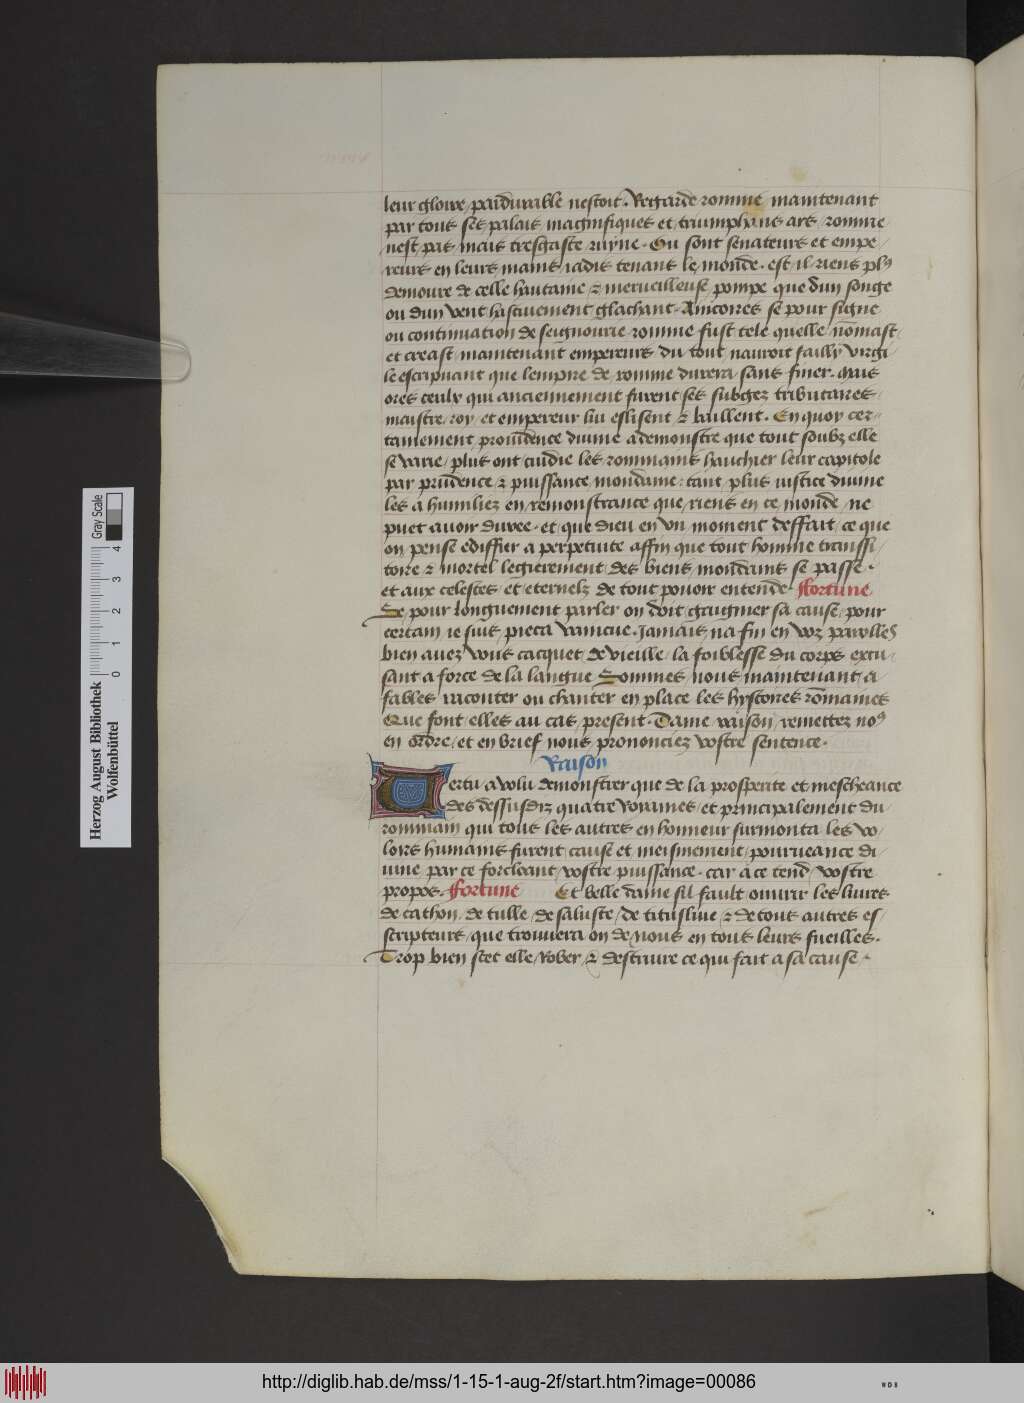 leur gloire / pardurable nestoit . Regarde romme maintenant
par tous ses palais magnifiques et triumphans ars / romme
nest pas mais tresgaste ruyne . Ou sont senateurs et empe-
reurs en leurs mains iadis tenans le monde . est il riens pl9
demoure de celle haultaine & merueilleuse pompe que dun songe
ou dun vent hastiuement glachant . Aincores se pour signe
ou continuation de seignourie romme fust tele quelle nomast
et creast maintenant empereurs du tout nauroit failly virgi-
le escripuant que lempire de romme durera sans finer . Mais
ores ceulx qui anciennement furent ses subgez tributaires
maistre / roy et empereur lui eslisent & baillent . En quoy cer-
tainement prouidence diuine a demonstre que tout soubz elle
se varie / plus ont cuidie les rommains haucher leur capitole
par prudence & puissance mondaine : tant plus iustice diuine
les a humiliez en remonstrance que riens en ce monde ne
puet auoir duree . et que dieu en vn moment deffait ce que
on pense ediffier a perpetuite affin que tout homme transsi-
toire & mortel legierement des biens mondains se passe .
et aux celestes et eternelz de tout pouoir entende . Fortune
Se pour longuement parler on doit gaignier sa cause / pour
certain ie suis pieca vaincue . Jamais na fin en voz parolles
bien auez vous cacquet de vieille / la foiblesse du corps excu-
sant a force de la langue . Sommes nous maintenant a
fables raconter ou chanter en place les hystoires rommaines
Que font elles au cas present . Dame raison remettez no9
en ordre / et en brief nous prononciez vostre sentence .
Raison
Vertu a volu demonstrer que de la prosperite et mescheance
des dessusdiz quatre royaumes et principalement du
rommain qui tous les autres en honneur surmonta les vo-
loirs humains furent cause et meismement pourueance di-
uine par ce forcloant vostre puissance . car a ce tend vostre
propos . Fortune Et belle dame sil fault ouurir les liures
de cathon / de tulle / de saluste / de tituslius & de tous autres es-
scripteurs / que trouuera on de nous en tous leurs fueilles .
Trop bien scet elle / rober & destruire ce qui fait a sa cause .
Herzog August Bibliothek
Wolfenbüttel
0 1 2 3 4
Gray Scale
http://diglib.hab.de/mss/1-15-1-aug-2f/start.htm?image=00086
WDB